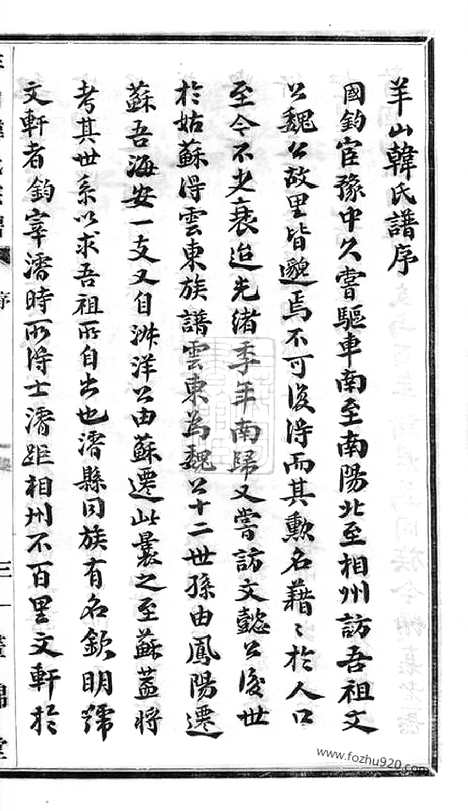 羊山韓氏譜序
國鈞官豫中久嘗驅車南至南陽北至相州訪吾祖文
公魏公故里皆邈焉不可復得而其勲名藉〻於人口
至今不少衰迨光緒季年南歸又嘗訪文懿公後世
於姑蘇得雲東族譜雲東為魏公十二世孫由鳳陽遷
蘇吾海安一支又自泮洋公由蘇遷此曩之至蘇葢將
考其世系以求吾祖所自出也濬縣同族有名欽明號
文軒者鈞宰濬時所得士濬距相州不百里文軒於
序
三
錦堂
www.fozhu920.com